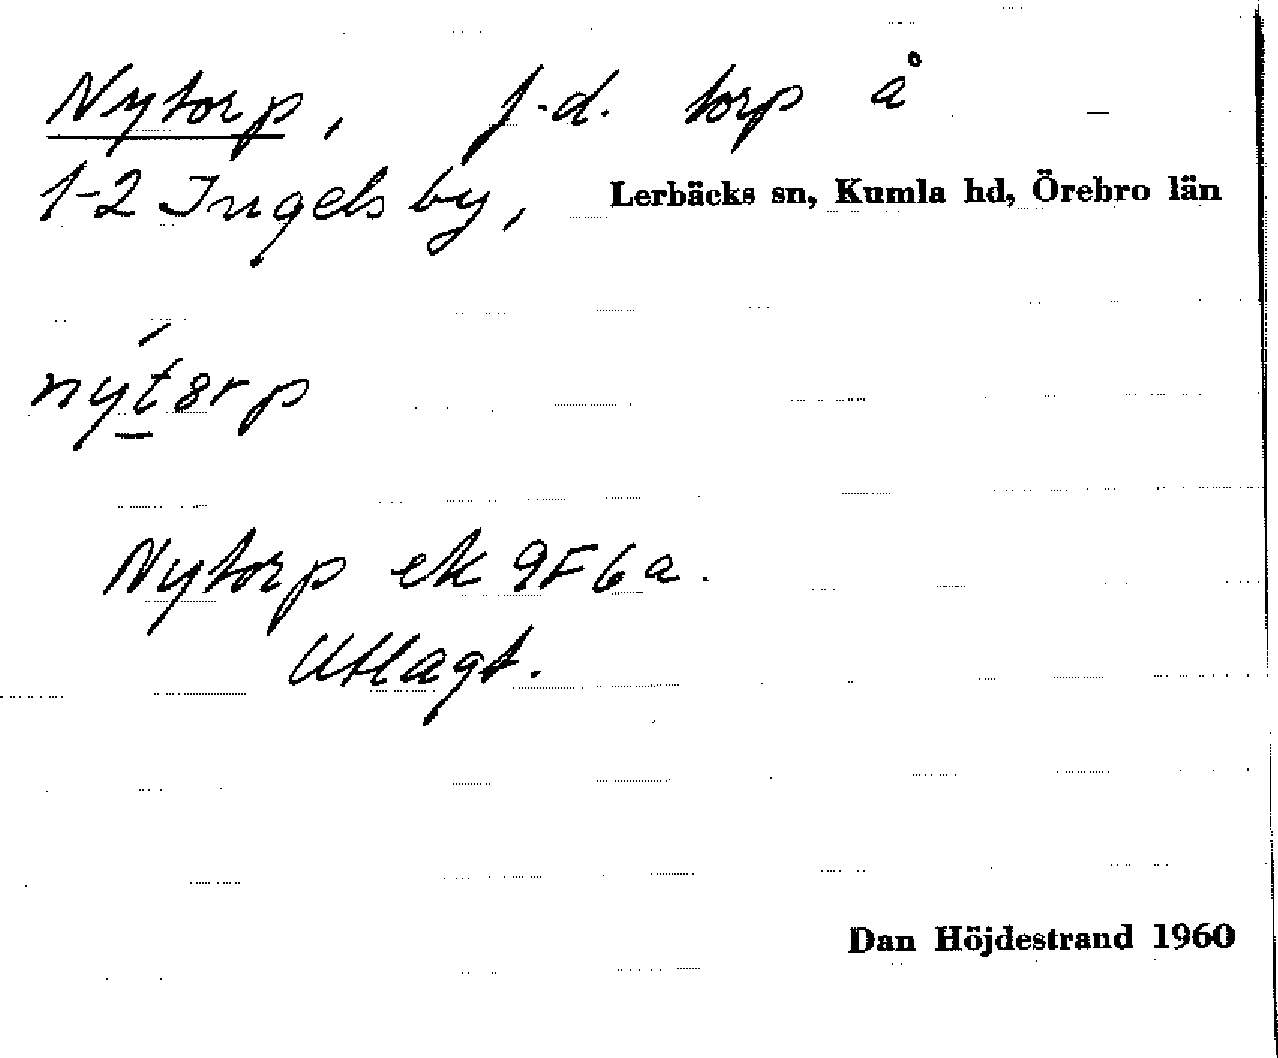 Nytorp, f.d. torp å
1-2 Ingelsby, Lerbäcks sn, Kumla hd, Örebro län
Nytorp ek 9F6a.
Utlagt.
Dan Höjdestrand 1960